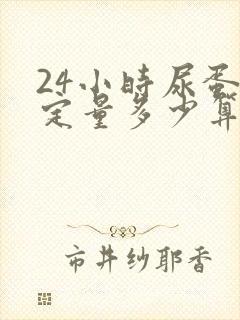 24小時尿蛋
定量多少算
市井纱耶香